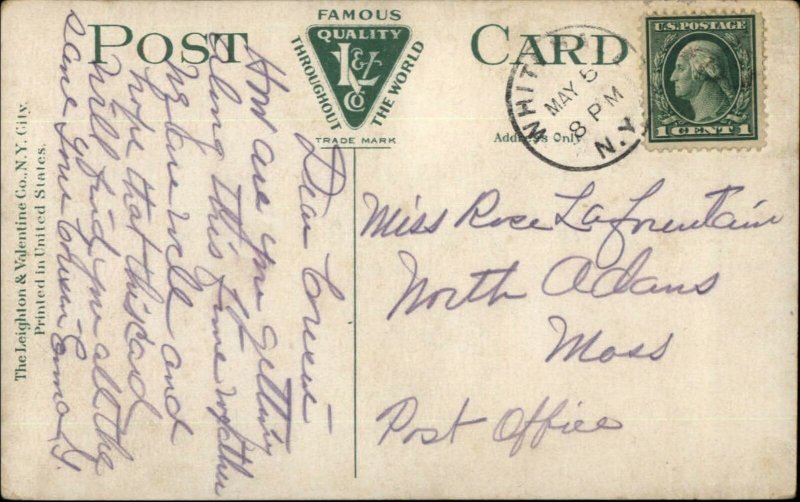 POST CARD
FAMOUS
QUALITY
L & V
CO
THROUGHOUT THE WORLD
TRADE MARK
Address Only
WHIT
MAY 5
8 PM
N.Y.
U.S. POSTAGE
1 CENT 1
The Leighton & Valentine Co., N.Y. City.
Printed in United States.
Dear
How are you getting
along this time
we are well and
hope that this card
will find you all the
same from Emma
Miss Rose LaFountain
North Adams
Mass
Post Office